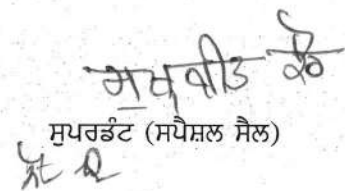 ਸੁਖਜੀਤ ਕੌਰ
ਸੁਪਰਡੰਟ (ਸਪੈਸ਼ਲ ਸੈਲ)